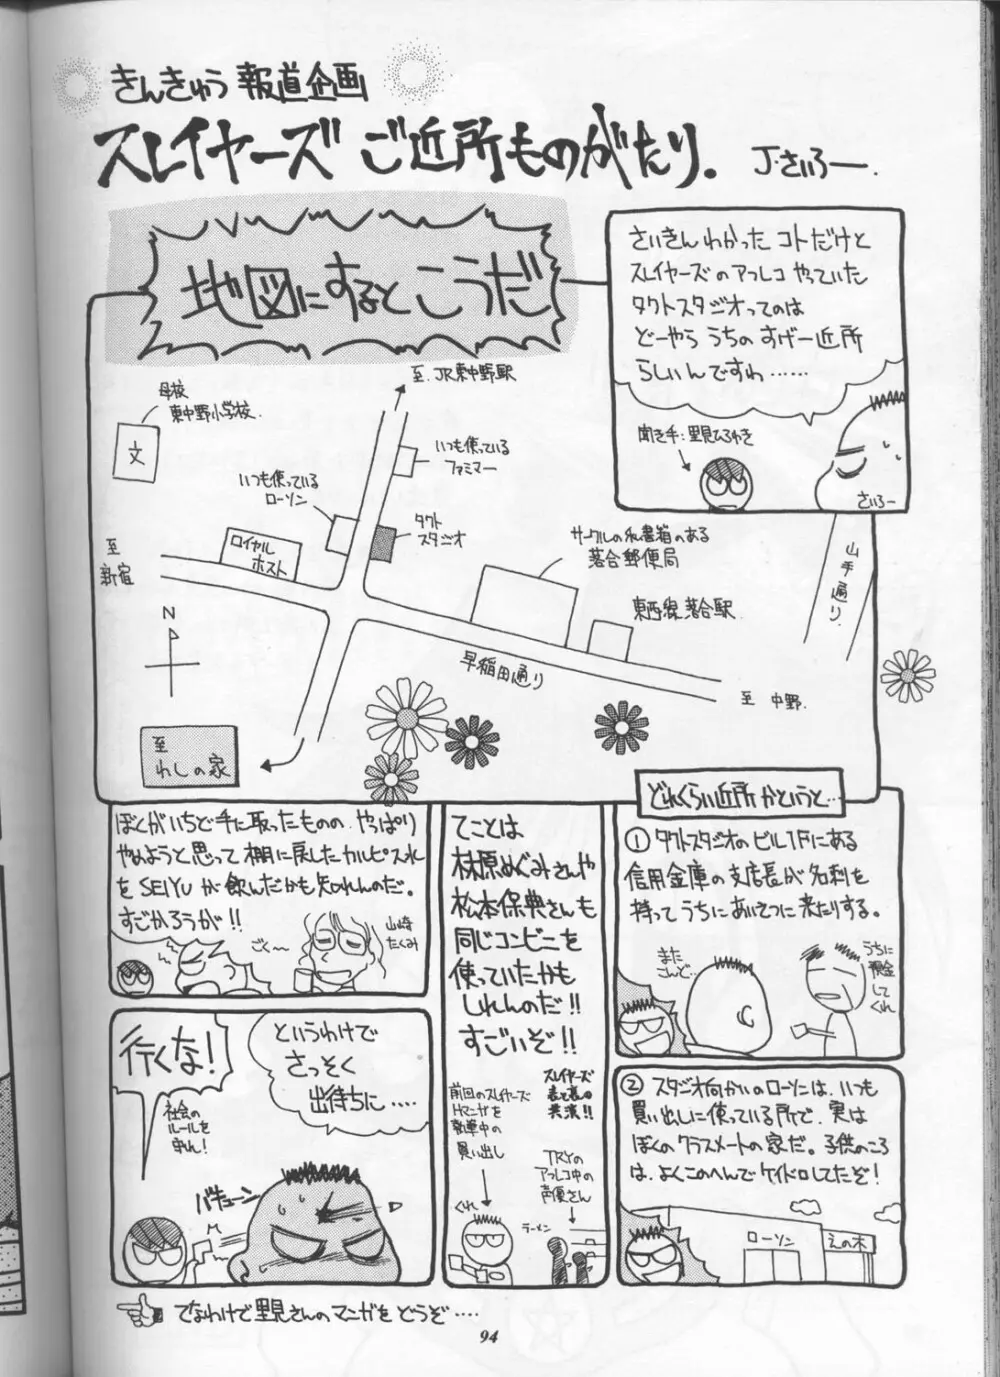 きんきゅう 報道企画
スレイヤーズ ご近所ものがたり。
J・さいろー.
さいきんわかった コトだけと
スレイヤーズのアフレコ やっていた
タクトスタジオってのは
どーやら うちの すげー近所
らしいんですわ……
聞き手:里見ひろゆき
さいろー
地図にするとこうだ
至 JR東中野駅
母校
東中野小学校.
文
いつも使っている
ファミマー
いつも使っている
ローソン
タクト
スタジオ
ロイヤル
ホスト
至
新宿
サークルの私書箱のある
落合郵便局
東西線落合駅
山手通り
N
早稲田通り
至 中野.
至
わしの家
どれくらい近所 かというと…
① タクトスタジオのビル1Fにある
信用金庫の支店長が名刺を
持ってうちにあいさつに来たりする。
また
こんど…
うちに
預金
して
くれ
② スタジオ向かいのローソンは、いつも
買い出しに使っている所で、実は
ぼくのクラスメートの家だ。子供のころ
は、よくこのへんでケイドロしてたぞ!
ローソン
えの木
てことは
林原めぐみさんや
松本保典さんも
同じコンビニを
使っていたかも
しれんのだ!!
すごいぞ!!
スレイヤーズ
表と裏の
共演!!
前回のスレイヤーズ
Hマンガを
執筆中の
買い出し
TRYの
アフレコ中の
声優さん
くれ
ラーメン
ぼくがいちど手に取ったものの、やっぱり
やめようと思って棚に戻したカルピス水
を SEIYUが飲んだかも知れんのだ。
すごかろうが!!
ごく〜
山崎
たくみ
というわけで
さっそく
出待ちに….
行くな!
社会の
ルールを
守れ!
バキューン
でなわけで里見さんのマンガを どうぞ….
94